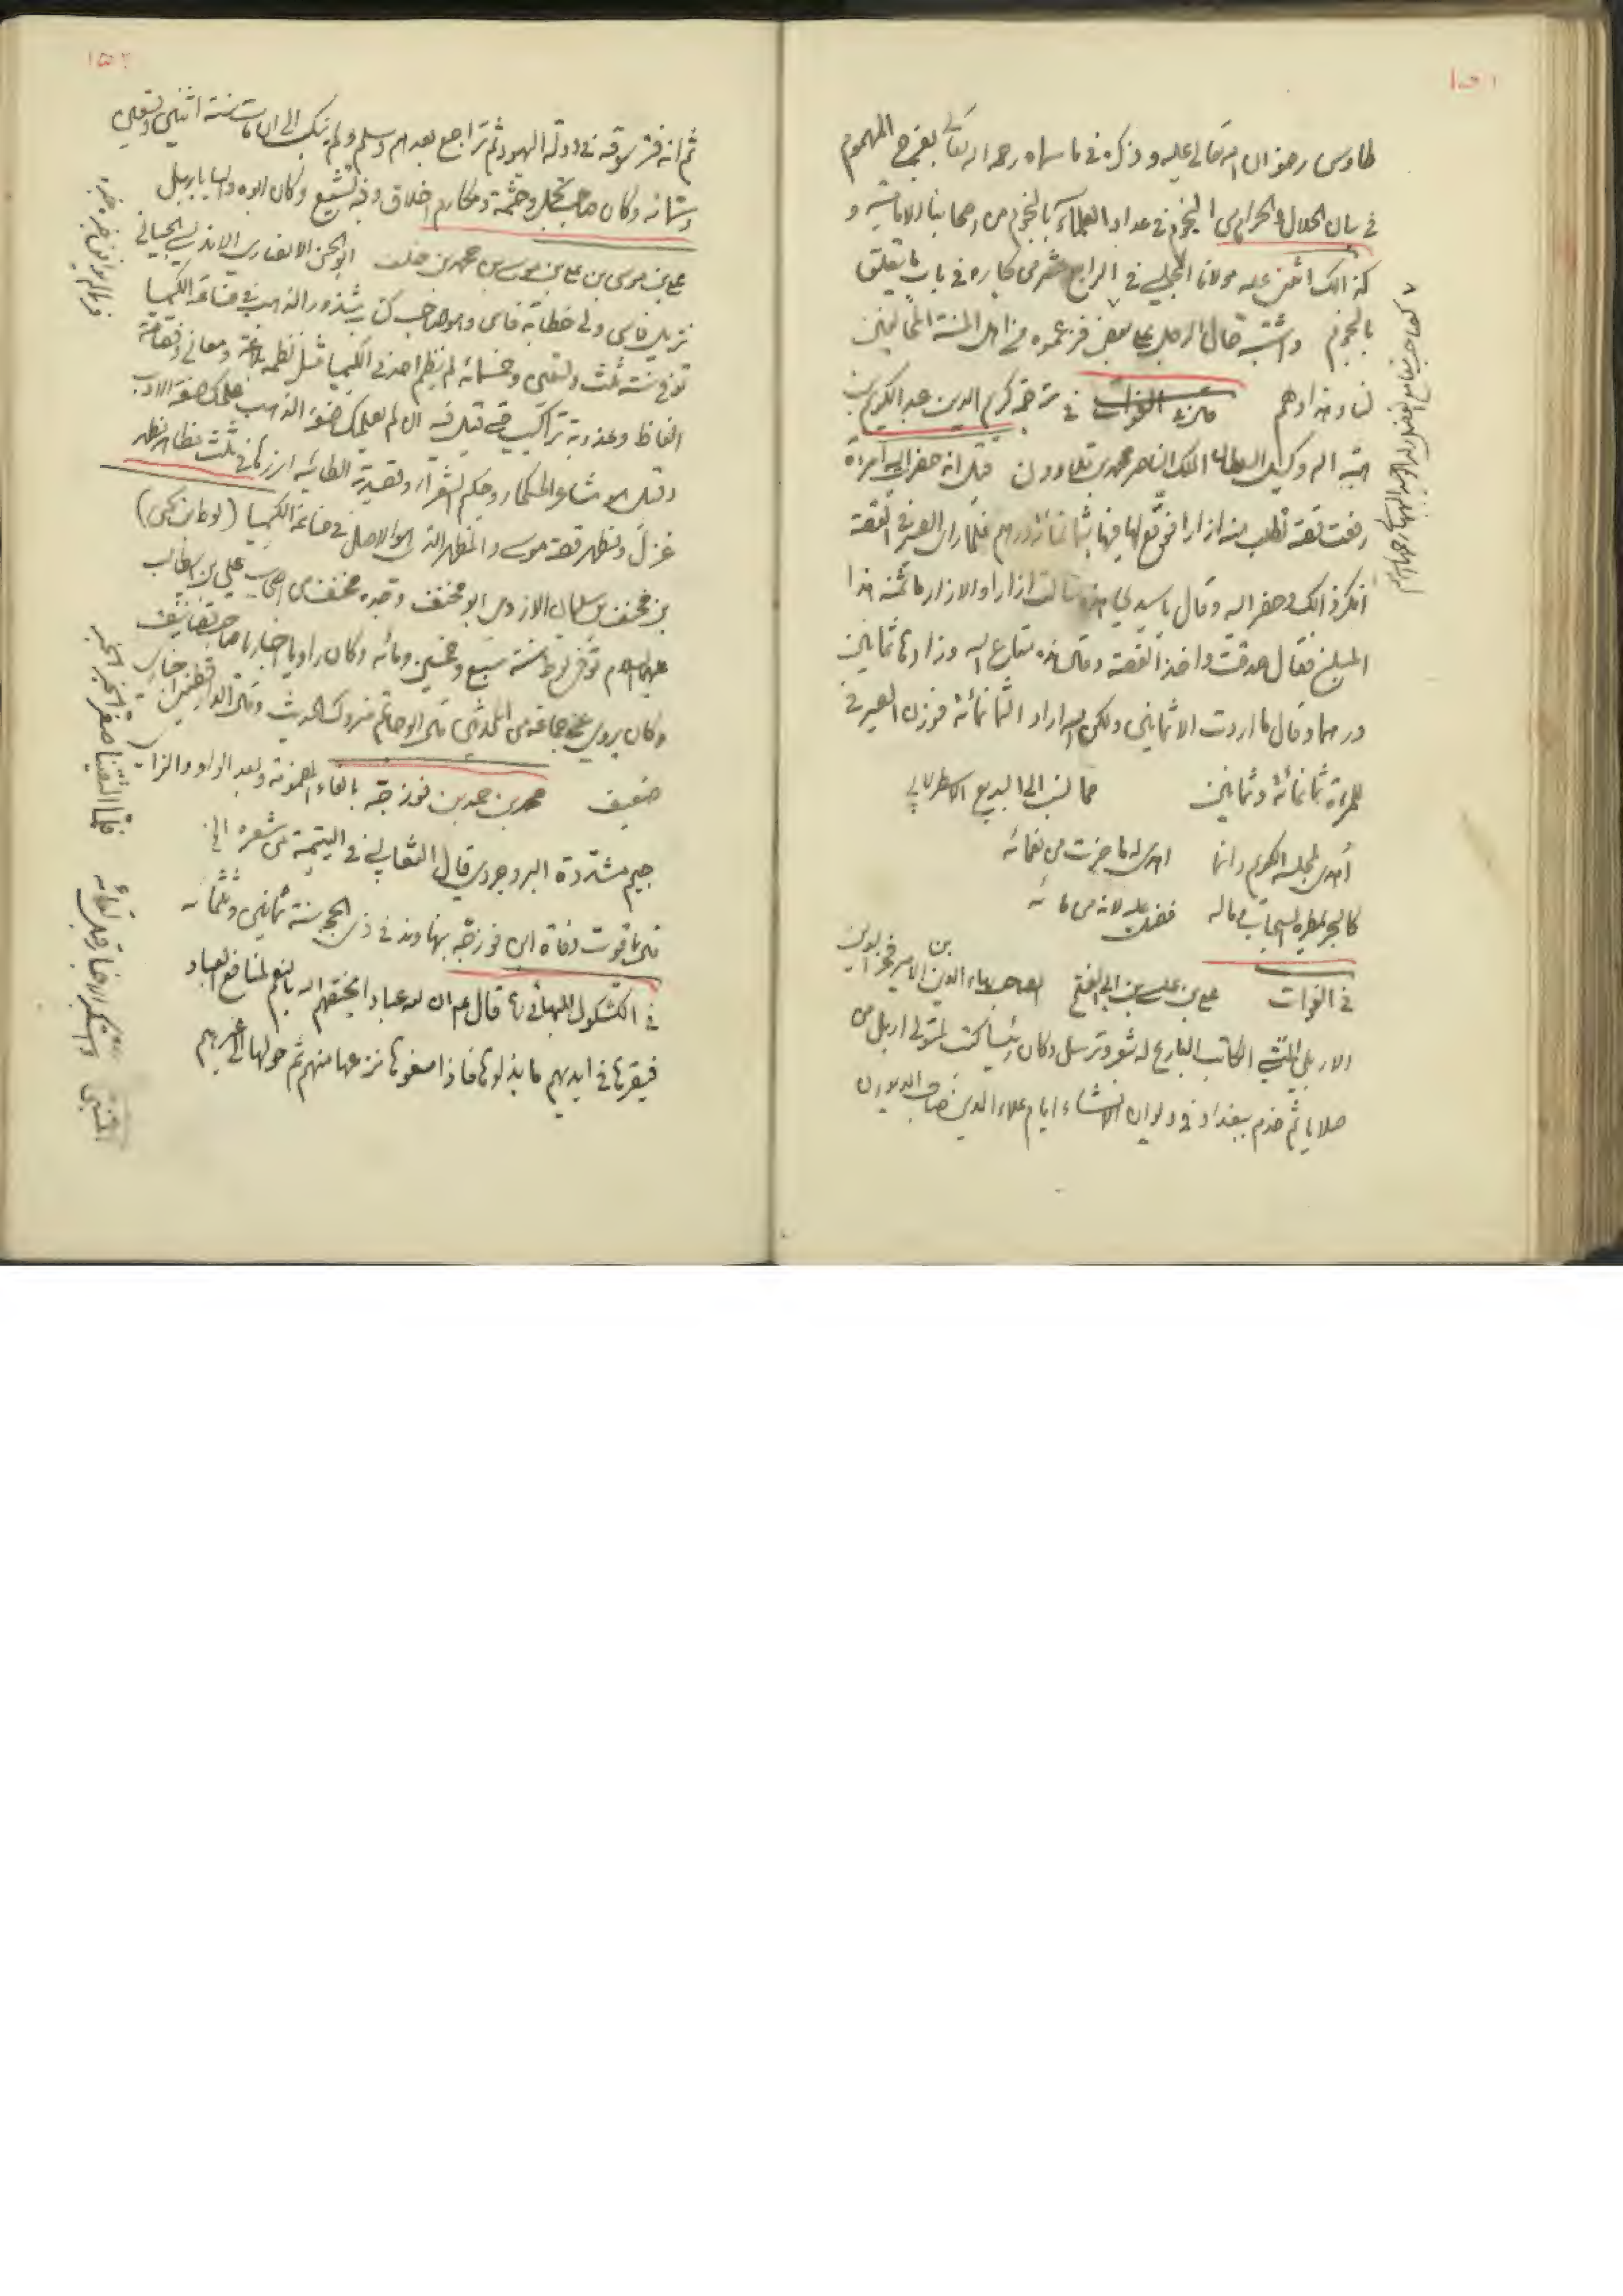 ١٥١
طاوس رضوان الله تعالى عليه وذكره في ما سماه رحمه الله تعالى بفرج المهموم
في بيان الحلال والحرام من النجوم في عداد العلماء بالنجوم من أصحابنا الامامية و
كذلك اثنى عليه مولانا المجلسي في الرابع عشر من بحاره في باب ما يتعلق
بالنجوم واشتبه حال الرجل على بعض فزعموه من اهل السنة المخالفين
لنا وهذا وهم من الفوات في ترجمة كريم الدين عبد الكريم بن
هبة الله وكيل السلطان الملك الناصر محمد بن قلاوون قيل انه حضر اليه امرأة
رفعت قصة تطلب منه ازارا فوقع لها فيها بثمانمائة درهم فلما رأى الصيرفي القصة
انكر ذلك وحضر اليه وقال يا سيدي هذه سالت ازارا والازار ما ثمنه هذا
المبلغ فقال صدقت واخذ القصة وقال هذه متاع الله وزادها ثمانين
درهما وقال ما اردت الا ثمانين ولكن الله اراد الثمانمائة فوزن الصيرفي
للمرءة ثمانمائة وثمانين مما نسب الى البديع الاسطرلابي
أهدى لمجلسه الكريم وانما اهدى له ما حزت من نعمائه
كالبحر يمطره السحاب وماله فضل عليه لانه من مائه
في الفوات علي بن عيسى بن ابي الفتح الصاحب بهاء الدين بن الامير فخر الدين
الاربلي المنشي الكاتب البارع له شعر وترسل وكان رئيسا كتب لمتولي اربل من
صلايا ثم خدم ببغداد في ديوان الانشاء ايام علاء الدين صاحب الديوان
١٥٢
ثم انه فتر سوقه في دولة اليهود ثم تراجع بعدهم وسلم ولم ينكب الى ان مات سنة اثنين وتسعين
وستمائة وكان صاحب تجمل وحشمة ومكارم اخلاق وفيه تشيع وكان ابوه واليا باربل
علي بن موسى بن علي بن موسى بن محمد بن خلف ابو الحسن الانصاري الاندلسي الجياني
نزيل فاس ولي خطابة فاس وهو صاحب كتاب شذور الذهب في صناعة الكيميا
توفي سنة ثلث وتسعين وخمسمائة لم ينظم احد في الكيميا مثل نظمه بلاغة ومعاني وفصاحة
الفاظ وعذوبة تراكيب حتى قيل فيه ان لم يعلمك صنعة الذهب علمك صنعة الادب
وقيل هو شاعر الحكماء وحكيم الشعراء وقصيدته الطائية ابرزها في ثلث مظاهر مظهر
غزل ومظهر قصة موسى والمظهر الذي هو الاصل في صناعة الكيميا (لوط بن يحيى)
بن مخنف بن سليمان الازدي ابو مخنف وجده مخنف من اصحاب علي بن ابيطالب
عليهما السلام توفى لوط سنة سبع وخمسين ومائه وكان راويا اخباريا صاحب تصانيف
وكان يروي عن جماعة من المحدثين قال ابو حاتم متروك الحديث وقال الدارقطني اخباري
ضعيف محمد بن حمد بن فورجة بالفاء المضمومة وبعد الواو والراء
جيم مشددة البروجردي قال الثعالبي في اليتيمة من شعره الخ
قال ياقوت وفاة ابن فورجة بنهاوند في ذي الحجة سنة ثمانين وثلثمائه
في الكشكول للبهائي قال ان لله عبادا يختصهم الله بالنعم لمنافع العباد
فيقرها في ايديهم ما بذلوها فاذا منعوها نزعها منهم ثم حولها الى غيرهم
فلما التقينا صغر الخبر الخبر
واستكبر الاخبار قبل لقائه
المتنبي